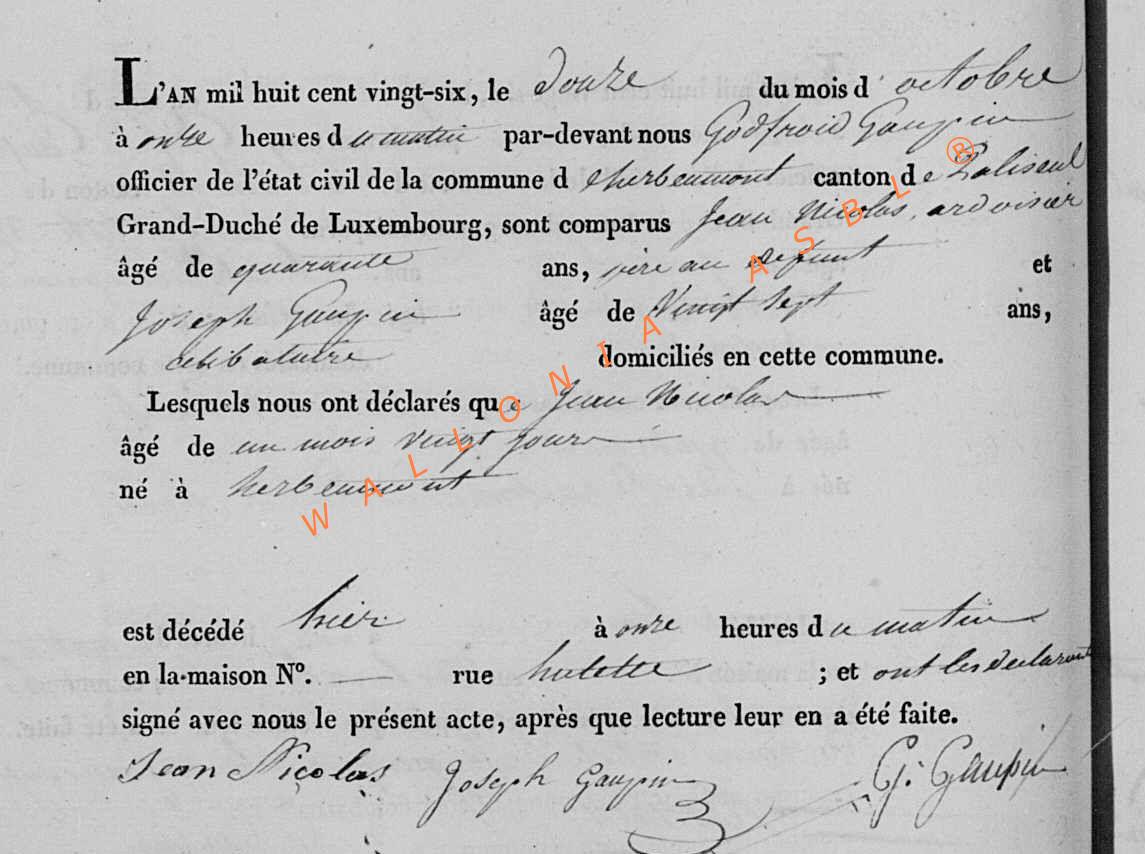 L'AN mil huit cent vingt-six, le douze du mois d'octobre
à onze heures du matin par-devant nous Godfroid Gaupin
officier de l'état civil de la commune d'herbeumont canton de Paliseul
Grand-Duché de Luxembourg, sont comparus Jean Nicolas, ardoisier
âgé de quarante ans, père au defunt et
Joseph Gaupin âgé de Vingt Sept ans,
celibataire domiciliés en cette commune.
Lesquels nous ont déclarés que Jean Nicolas
âgé de un mois vingt jours
né à herbeumont
est décédé hier à onze heures du matin
en la maison N°. rue hulette ; et ont les declarants
signé avec nous le présent acte, après que lecture leur en a été faite.
Jean Nicolas Joseph Gaupin G. Gaupin
WALLONIA ASBL ®